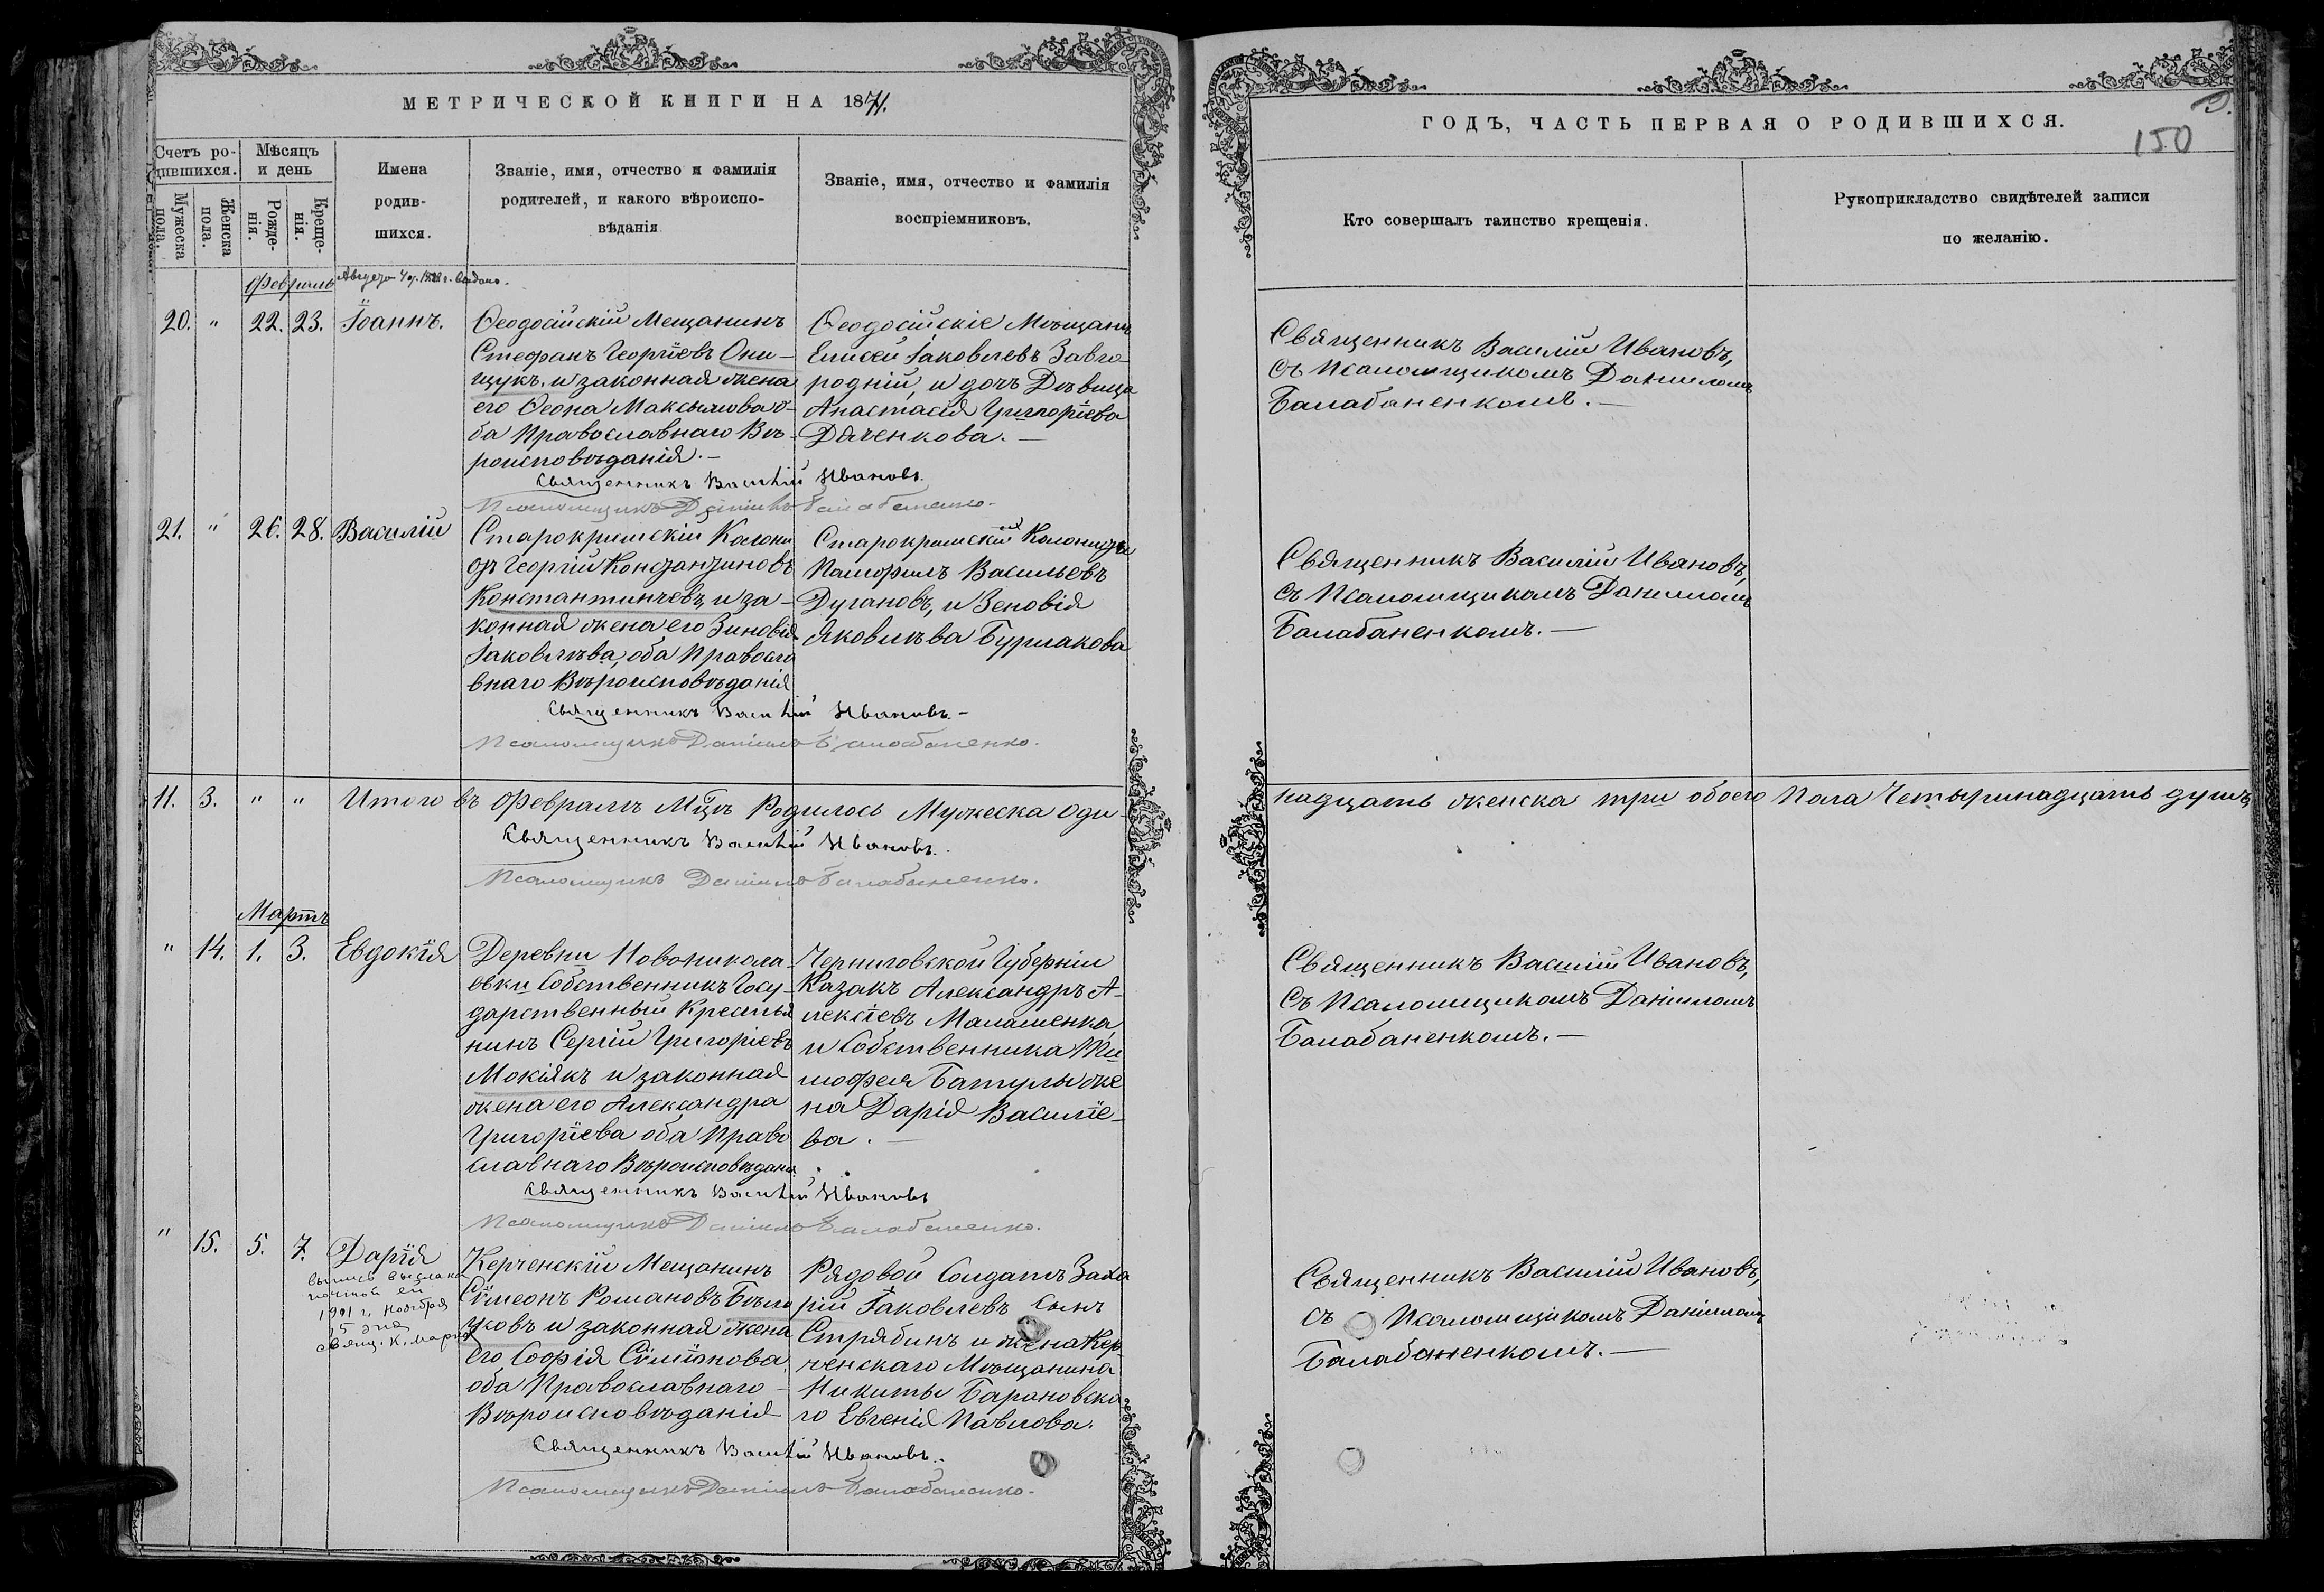 МЕТРИЧЕСКОЙ КНИГИ НА 1871.
Счетъ ро-
дившихся.
Мужеска
пола.
Женска
пола.
Мѣсяцъ
и день
Рожде-
нія.
Креще-
нія.
Имена
родив-
шихся.
Званіе, имя, отчество и фамилія
родителей, и какого вѣроиспо-
вѣданія
Званіе, имя, отчество и фамилія
воспріемниковъ.
Февраль
20. " 22. 23. Іоаннъ.
Ѳеодосійскій Мещанинъ
Стефанъ Георгіевъ Они-
щукъ, и законная жена
его Ѳеона Максимова о-
ба Православнаго Вѣ-
роисповѣданія.-
Ѳеодосійскіе Мѣщане
Елисей Іаковлевъ Завго-
родній, и дочь Дѣвица
Анастасія Григоріева
Дяченкова.-
Священникъ Василій Ивановъ.
Псаломщикъ Даніилъ Балабаненко.
21. " 26. 28. Василій
Старокрымскій Колони
стъ Георгій Константиновъ
Константиновъ, и за-
конная жена его Зиновія
Іаковлѣва, оба Правосла
внаго Вѣроисповѣданія
Старокрымскій Колонистъ
Памфилъ Васильевъ
Дугановъ, и Зеновія
Яковлѣва Бурлакова
Священникъ Василій Ивановъ.-
Псаломщикъ Даніилъ Балабаненко.
11. 3. " " Итого въ Февралѣ Мцѣ Родилось Мужеска Оди-
Священникъ Василій Ивановъ.
Псаломщикъ Даніилъ Балабаненко.
Мартъ
" 14. 1. 3. Евдокія
Деревни Новоникола-
евки Собственникъ Госу-
дарственный Крестья
нинъ Сергій Григоріевъ
Мокіякъ и законная
жена его Александра
Григоріева оба Право
славнаго Вѣроисповѣданія
Черниговской Губерніи
Казакъ Александръ А-
лексіевъ Малашенко,
и Собственника Ти
мофея Батулы же
на Дарія Василіе-
ва.-
Священникъ Василій Ивановъ
Псаломщикъ Даніилъ Балабаненко.
" 15. 5. 7. Дарія
1901 г. Ноября
15 дня
Свящ. К.
Керченскій Мещанинъ
Сѵмеонъ Романовъ
и законная жена
его Софія Сѵмеонова,
оба Православнаго
Вѣроисповѣданія
Рядовой Солдатъ Заха
рій Іаковлевъ Сынъ
Стрябинъ и жена Кер
ченскаго Мѣщанина
Никиты Барановска
го Евгенія Павлова.
Священникъ Василій Ивановъ.
Псаломщикъ Даніилъ Балабаненко.
ГОДЪ, ЧАСТЬ ПЕРВАЯ О РОДИВШИХСЯ.
150
Кто совершалъ таинство крещенія.
Рукоприкладство свидѣтелей записи
по желанію.
Священникъ Василій Ивановъ,
съ Псаломщикомъ Даніиломъ
Балабаненкомъ.-
Священникъ Василій Ивановъ,
съ Псаломщикомъ Даніиломъ
Балабаненкомъ.-
надцать женска три обоего Пола Четырнадцать душъ
Священникъ Василій Ивановъ,
съ Псаломщикомъ Даніиломъ
Балабаненкомъ.-
Священникъ Василій Ивановъ,
съ Псаломщикомъ Даніиломъ
Балабаненкомъ.-